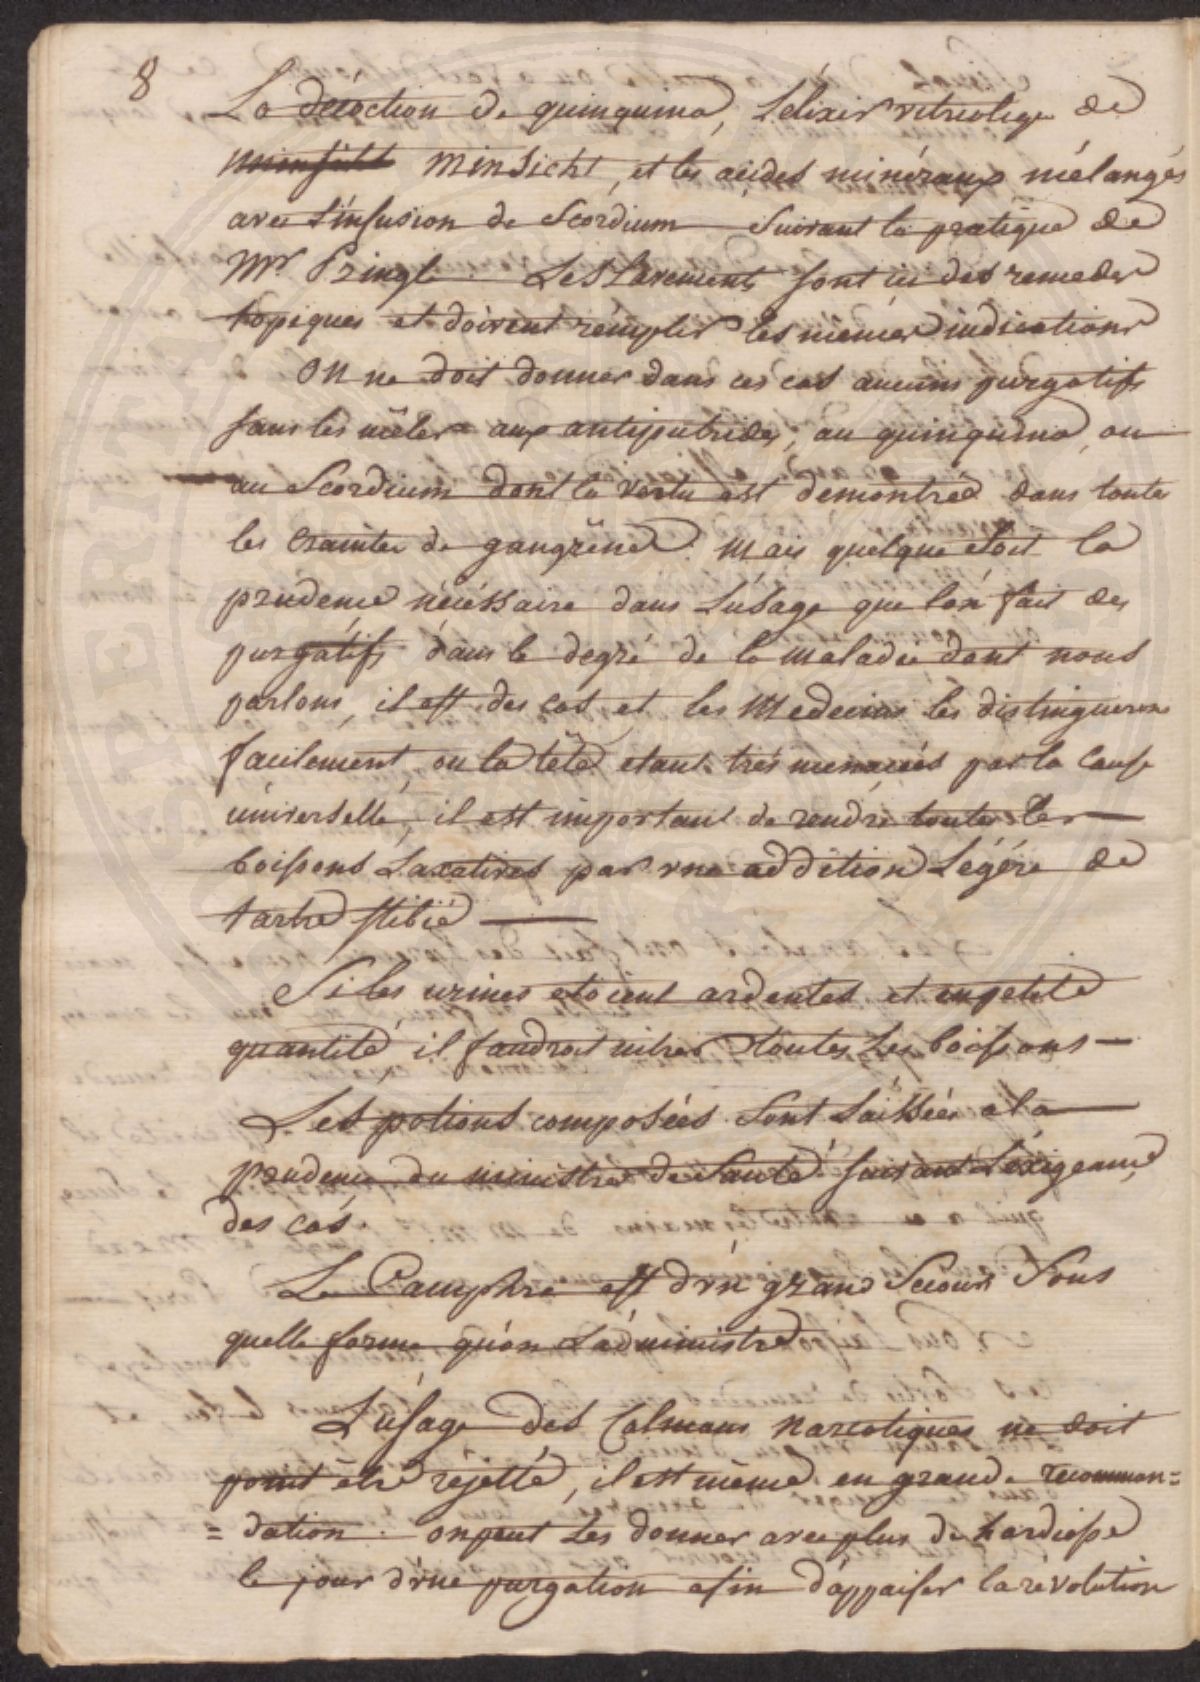 8
La décoction de quinquina, L'elixir vitriolique de
Minsicht, et les acides minéraux mélangés
avec l'infusion de Scordium Suivant la pratique de
Mr Pringle. Les Lavements sont ici des remedes
topiques et doivent remplir les mêmes indications
On ne doit donner dans ces cas aucuns purgatifs
sans les mêler aux antiputrides, au quinquina, ou
au Scordium dont la vertu est demontrée dans toutes
les craintes de gangrêne. Mais quelque soit la
prudence nécéssaire dans L'úsage que l'on fait des
purgatifs dans le degré de la maladie dont nous
parlons, il est des cas et les Medecins les distinguerons
facilement, ou la tête etant trés menacées par la cause
úniverselle, il est important de rendre toutes les
boissons Laxatives par vne addition Légére de
tartre stibié
Si les urines etoient ardentes et en petite
quantité, il faudroit nitrer toutes les boissons
Les potions composées sont laissées a la
prudence du ministre de Santé suivant L'exigeance
des cas.
Le Camphre est d'vn grand Secours Sous
quelle forme qu'on L'administre
L'úsage des Calmans narcotiques ne doit
point être réjetté, il est même en grande recomman=
=dation. on peut Les donner avec plus de hardiesse
le jour d'vne purgation afin d'appaiser la révolution